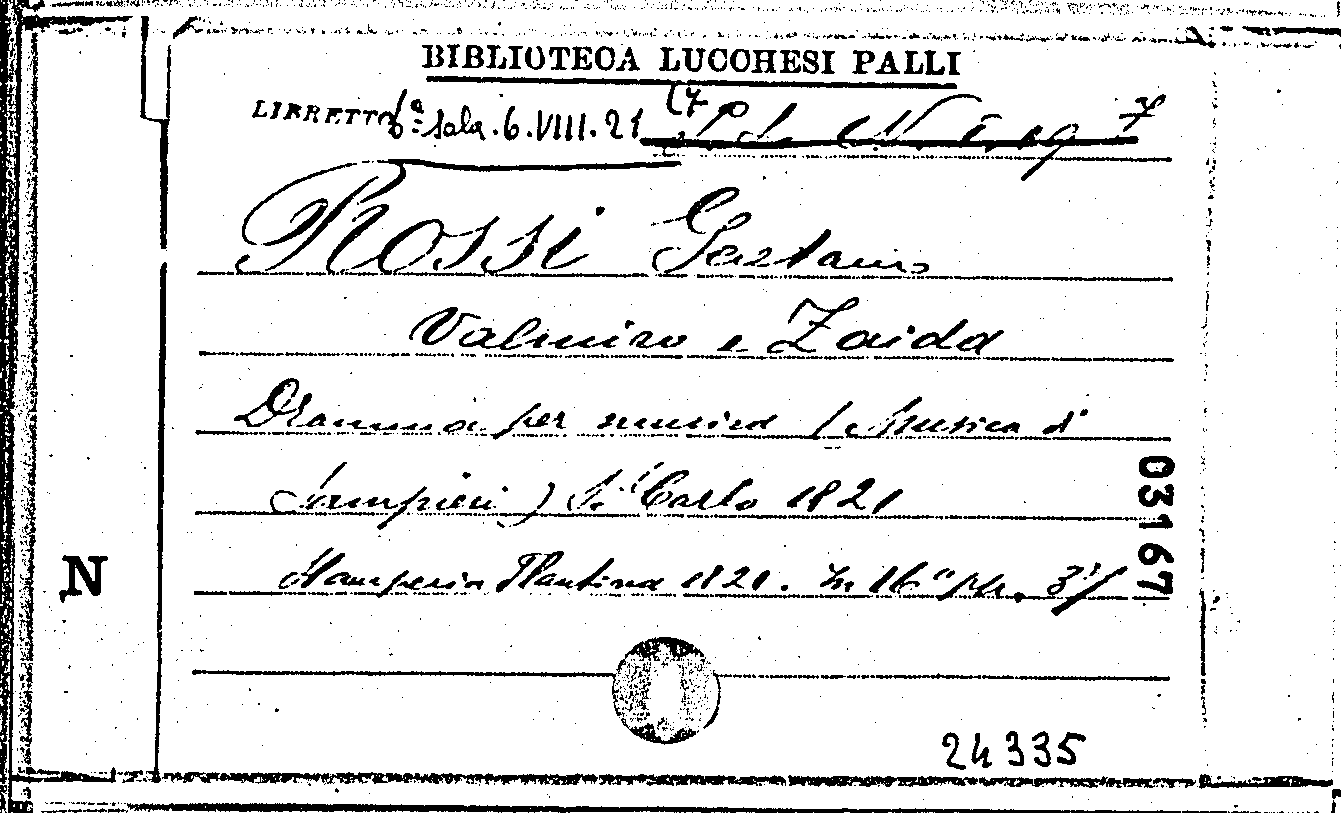 BIBLIOTECA LUCCHESI PALLI
LIBRETTO 6ª Sala. 6. VIII. 21 (7
ROSSI Gaetano
Valmiro e Zaida
Dramma per musica (Musica di
Sampieri) S. Carlo 1821
Stamperia Flautina 1821. In 16° pp.
03167
N
24335